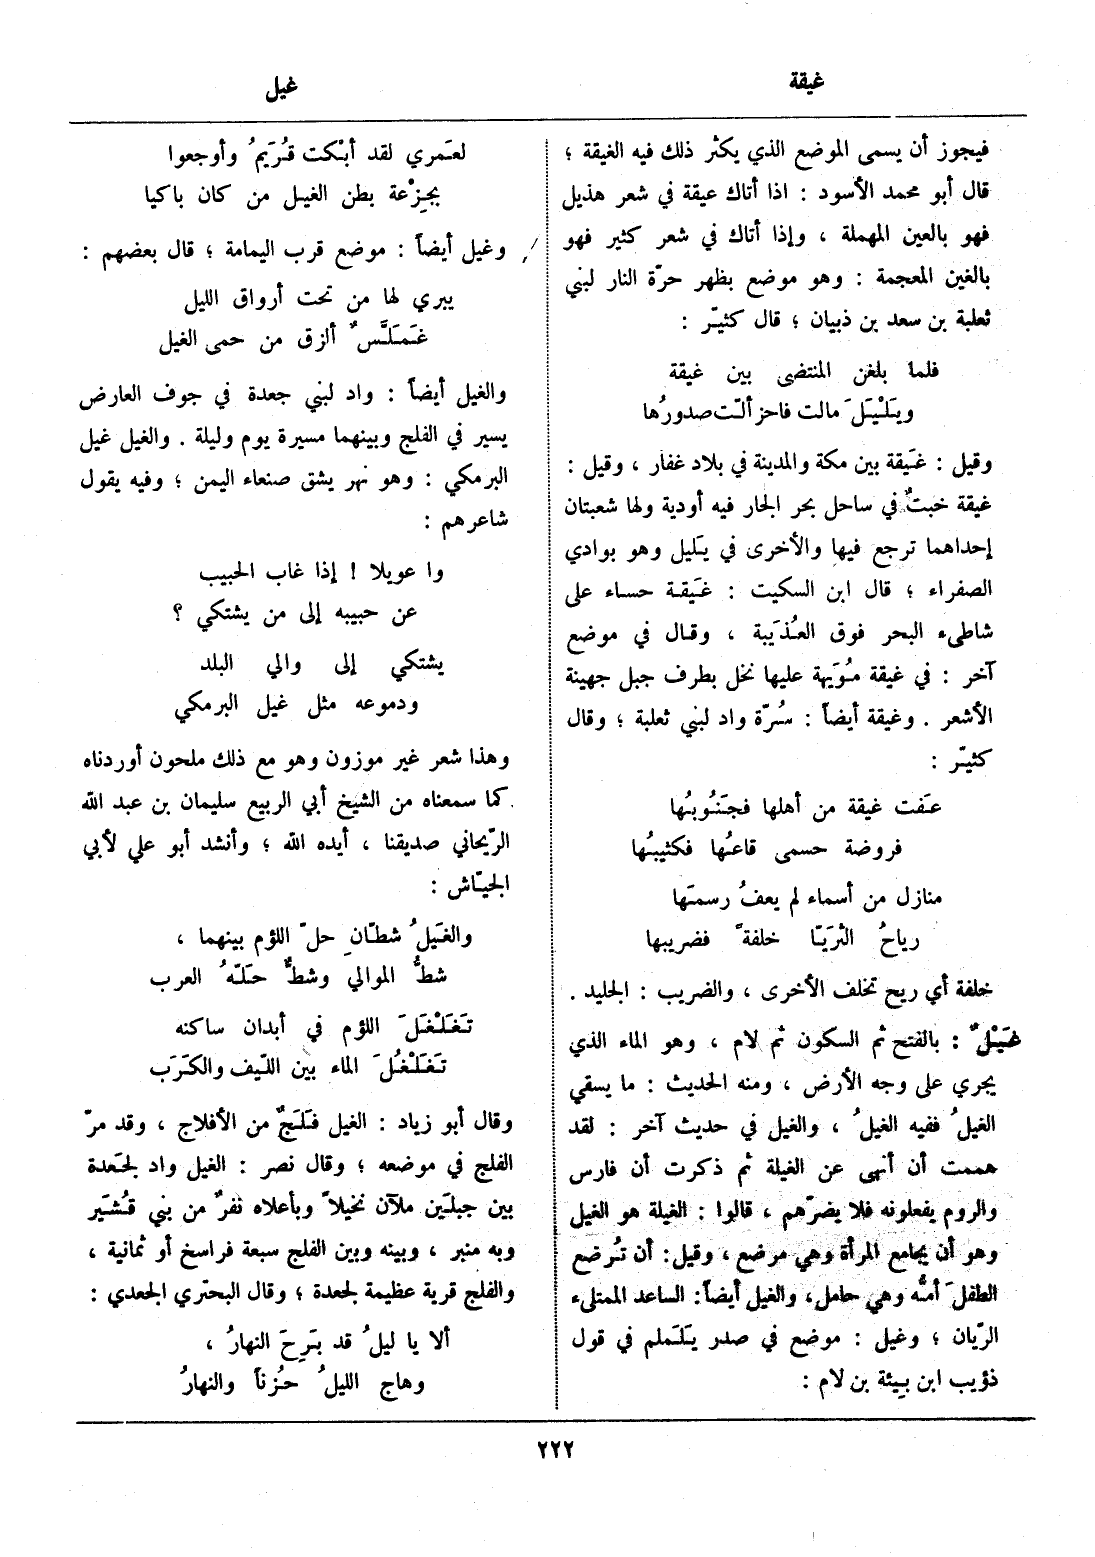 غيقة
غيل
فيجوز أن يسمى الموضع الذي يكثر ذلك فيه الغيقة ؛
قال أبو محمد الأسود : اذا أتاك عيقة في شعر هذيل
فهو بالعين المهملة ، وإذا أتاك في شعر كثير فهو
بالغين المعجمة : وهو موضع بظهر حرّة النار لبني
ثعلبة بن سعد بن ذبيان ؛ قال كثيّر :
فلما بلغن المنتضى بين غيقة
ويَلْيَلَ مالت فاحزألّت صدورُها
وقيل : غَيقة بين مكة والمدينة في بلاد غفار ، وقيل :
غيقة خبتٌ في ساحل بحر الجار فيه أودية ولها شعبتان
إحداهما ترجع فيها والأخرى في يَليل وهو بوادي
الصفراء ؛ قال ابن السكيت : غَيقة حساء على
شاطىء البحر فوق العُذَيبة ، وقال في موضع
آخر : في غيقة مُوَيهة عليها نخل بطرف جبل جهينة
الأشعر . وغيقة أيضاً : سُرّة واد لبني ثعلبة ؛ وقال
كثيّر :
عَفت غيقة من أهلها فجَنُوبُها
فروضة حسمى قاعُها فكثيبُها
منازل من أسماء لم يعفُ رسمَها
رياحُ الثرَيّا خلفةً فضريبها
خلفة أي ريح تخلف الأخرى ، والضريب : الجليد .
غَيْلٌ : بالفتح ثم السكون ثم لام ، وهو الماء الذي
يجري على وجه الأرض ، ومنه الحديث : ما يسقي
الغيلُ ففيه الغيلُ ، والغيل في حديث آخر : لقد
هممت أن أنهى عن الغيلة ثم ذكرت أن فارس
والروم يفعلونه فلا يضرّهم ، قالوا : الغيلة هو الغيل
وهو أن يجامع المرأة وهي مرضع ، وقيل: أن تُرضع
الطفلَ أمُّه وهي حامل، والغيل أيضاً: الساعد الممتلىء
الرّيان ؛ وغيل : موضع في صدر يَلَملم في قول
ذؤيب ابن بيئة بن لام :
لعَمري لقد أبْكت قُرَيمُ وأوجعوا
بجِزْعة بطن الغيل من كان باكيا
وغيل أيضاً : موضع قرب اليمامة ؛ قال بعضهم :
يبري لها من تحت أرواق الليل
غَمَلَّسٌ ألزق من حمى الغيل
والغيل أيضاً : واد لبني جعدة في جوف العارض
يسير في الفلج وبينهما مسيرة يوم وليلة . والغيل غيل
البرمكي : وهو نهر يشق صنعاء اليمن ؛ وفيه يقول
شاعرهم :
وا عويلا ! إذا غاب الحبيب
عن حبيبه إلى من يشتكي ؟
يشتكي إلى والي البلد
ودموعه مثل غيل البرمكي
وهذا شعر غير موزون وهو مع ذلك ملحون أوردناه
كما سمعناه من الشيخ أبي الربيع سليمان بن عبد الله
الرّيحاني صديقنا ، أيده الله ؛ وأنشد أبو علي لأبي
الجيّاش :
والغَيلُ شطّانِ حلّ اللؤم بينهما ،
شطُّ الموالي وشطٌّ حَلّهُ العرب
تَغَلْغَلَ اللؤم في أبدان ساكنه
تَغَلْغُلَ الماء بين اللّيف والكَرَب
وقال أبو زياد : الغيل فلَجٌ من الأفلاج ، وقد مرّ
الفلج في موضعه ؛ وقال نصر : الغيل واد لجَعدة
بين جبلَين ملآن نخيلاً وبأعلاه نفرٌ من بني قُشَير
وبه منبر ، وبينه وبين الفلج سبعة فراسخ أو ثمانية ،
والفلج قرية عظيمة لجعدة ؛ وقال البحتري الجعدي :
ألا يا ليلُ قد بَرِحَ النهارُ ،
وهاج الليلُ حُزناً والنهارُ
٢٢٢